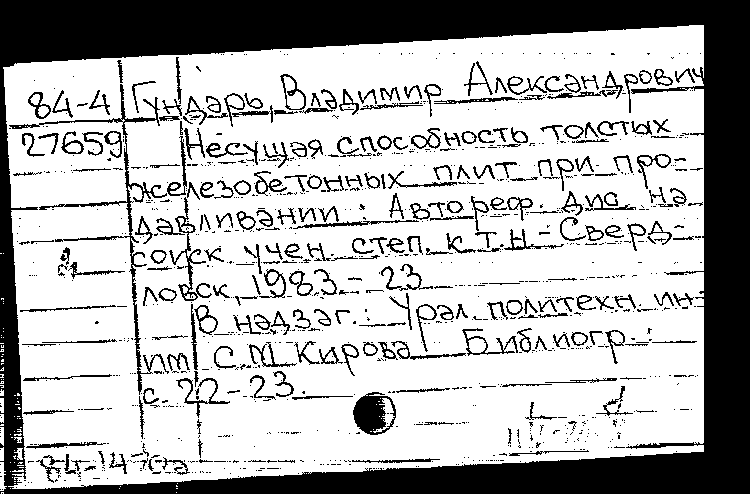 84-4 Гундарь, Владимир Александрович
27659 Несущая способность толстых
железобетонных плит при про-
давливании : Автореф. дис. на
соиск. учен. степ. к.т.н. - Сверд-
ловск, 1983. - 23
В надзаг.: Урал. политехн. ин-
им С.М. Кирова Библиогр.:
с. 22-23.